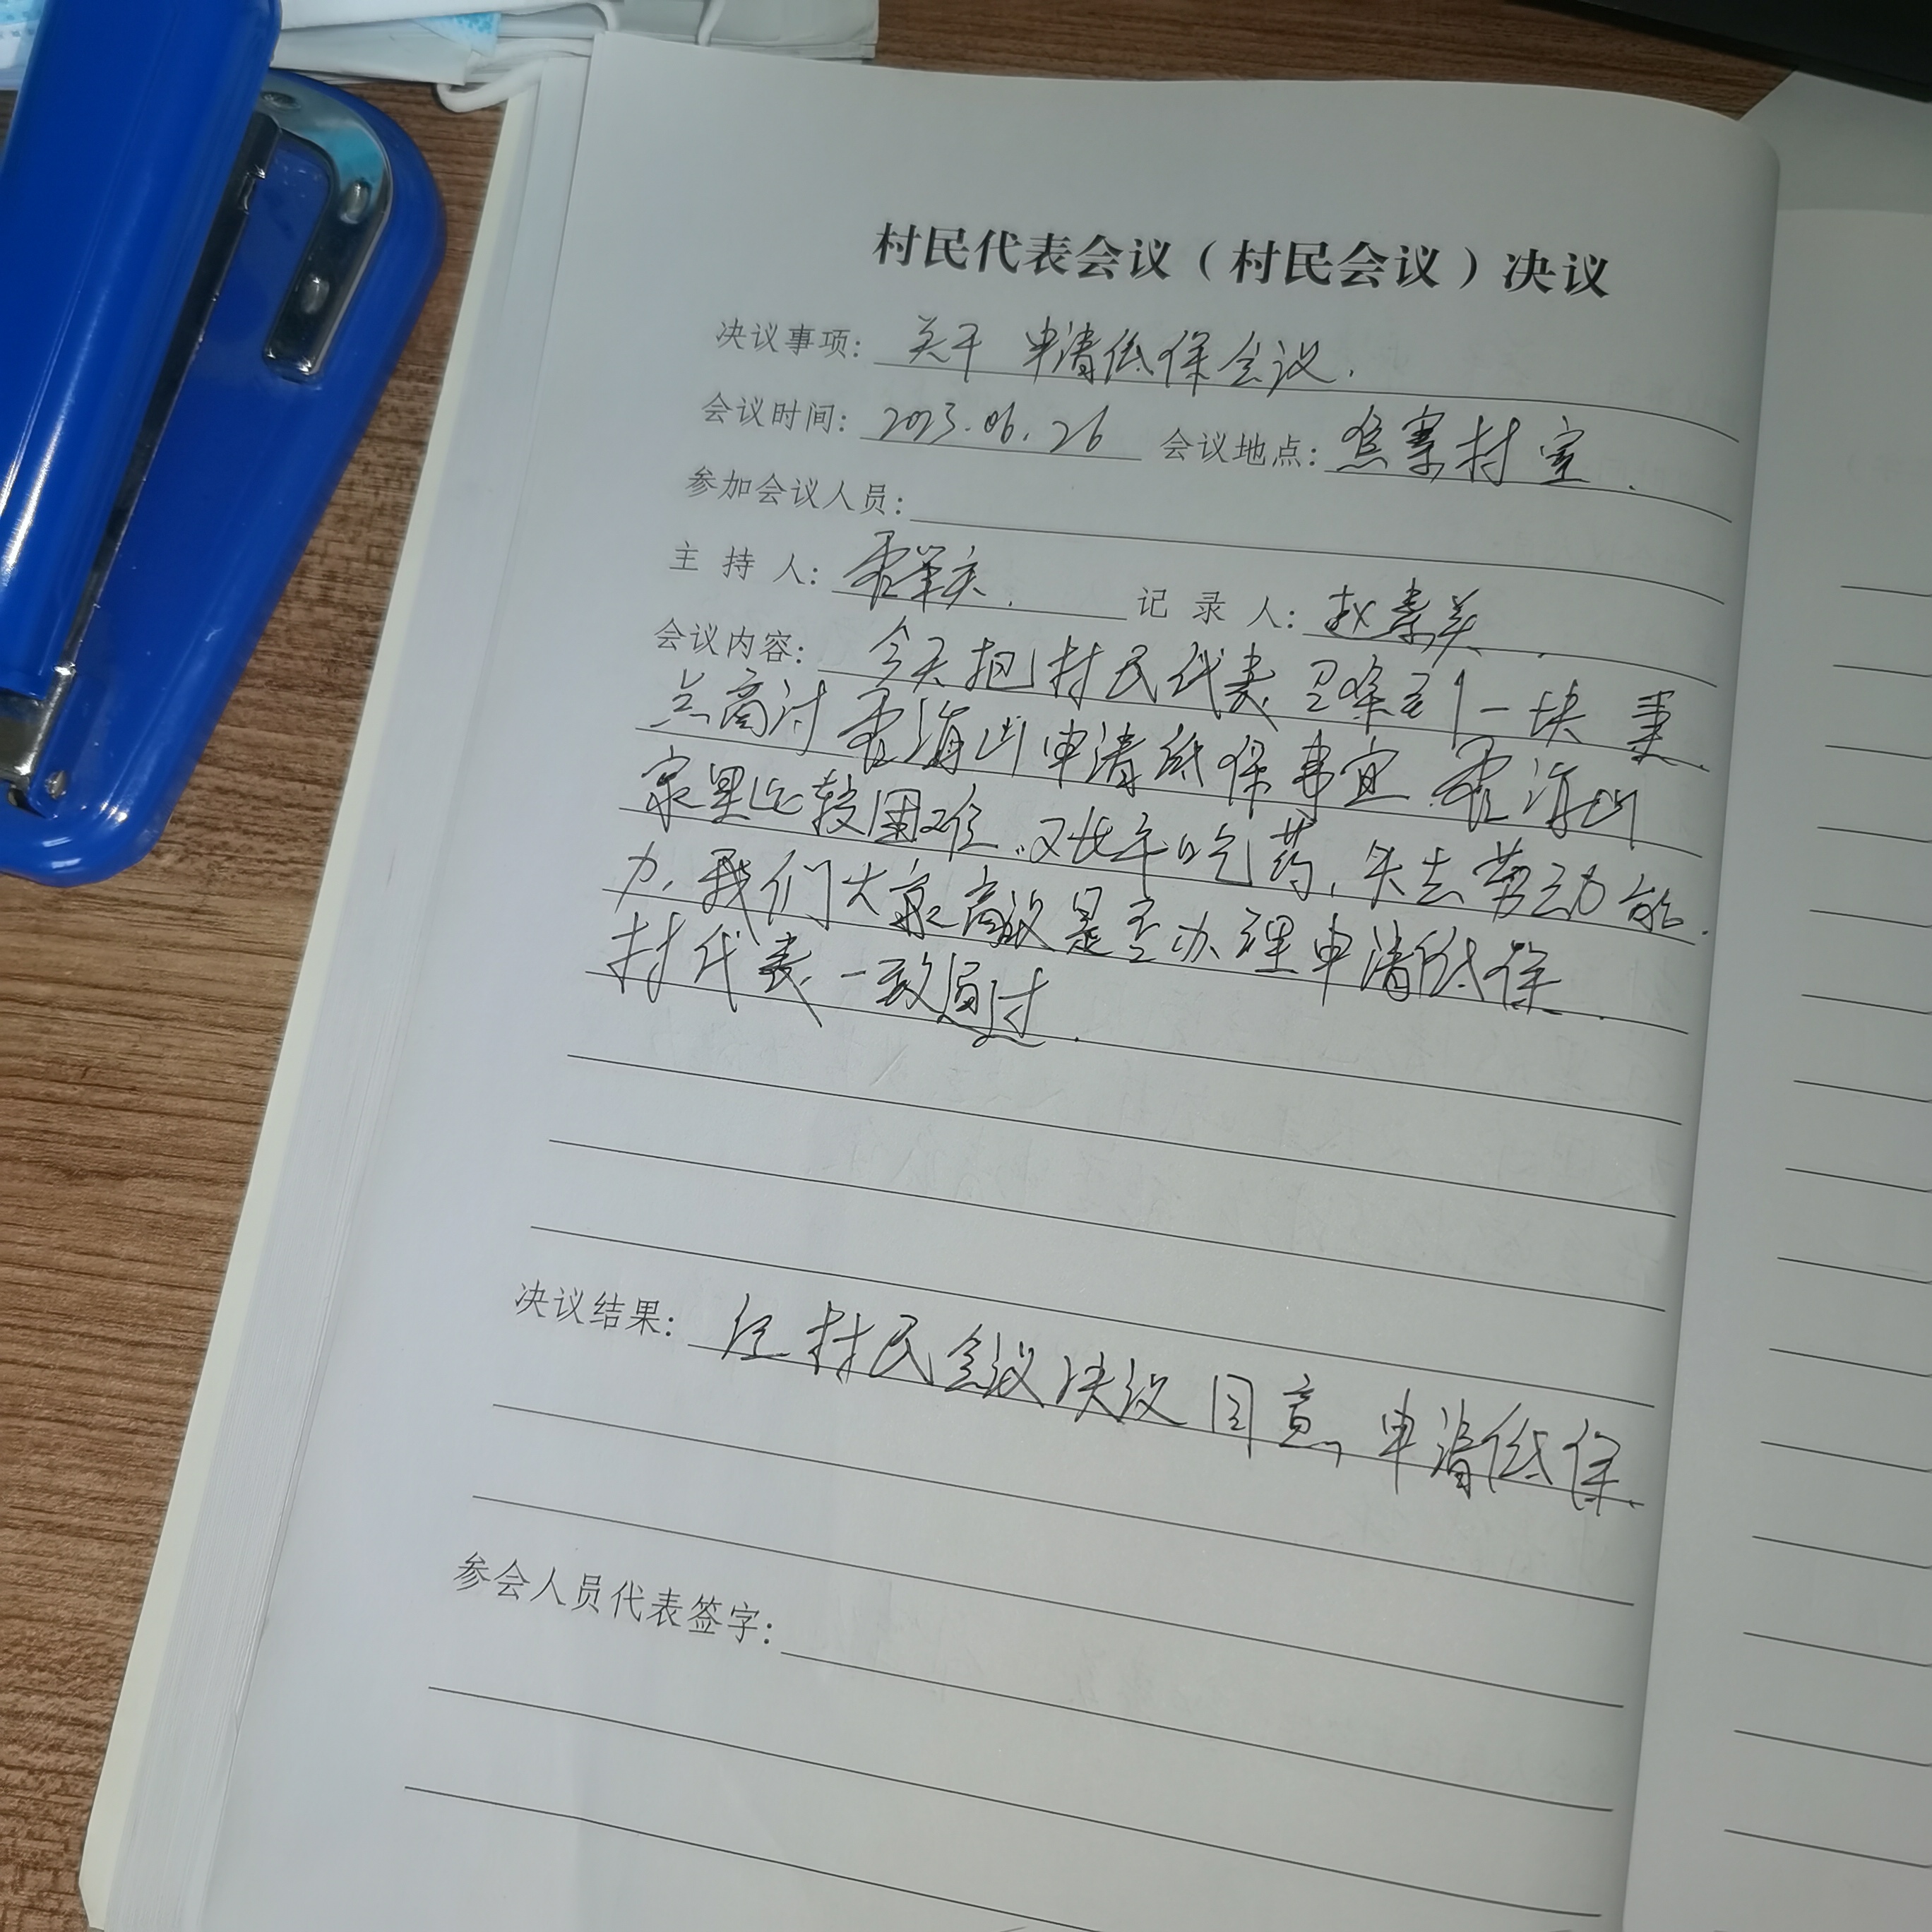 村民代表会议（村民会议）决议
决议事项： 关于申请低保会议.
会议时间： 2023.06.26 会议地点： 焦寨村室.
参加会议人员：
主 持 人： 记 录 人： 赵素美.
会议内容： 今天把村民代表召集到一块 重
点商讨 海山申请低保事宜. 海山
家里比较困难.又长年吃药，失去劳动能
力.我们大家商议是否办理申请低保.
村代表一致通过.
决议结果： 经村民会议决议 同意申请低保.
参会人员代表签字：